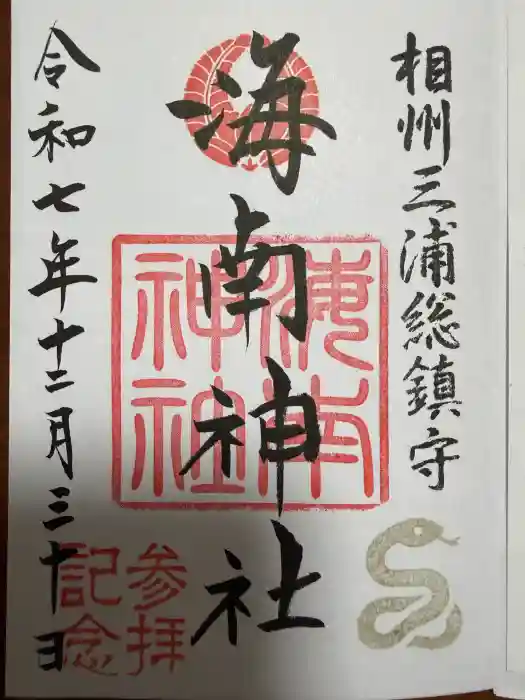 相州三浦総鎮守
海南神社
海南神社
参拝記念
令和七年十二月三十日